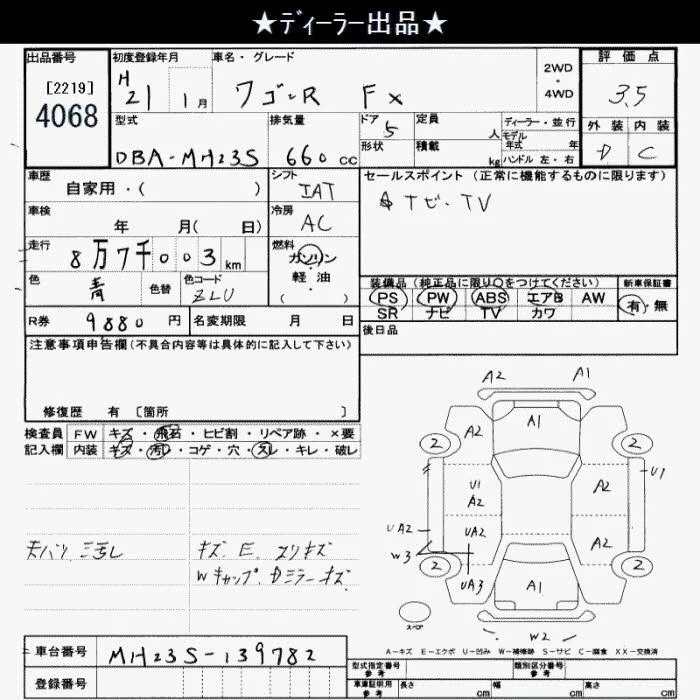 ★ディーラー出品★
出品番号
[2219]
4068
初度登録年月
H
21 1月
車名・グレード
ワゴンR FX
2WD
・
4WD
評価点
3.5
外装 内装
D C
型式
DBA-MH23S
排気量
660 cc
ドア
5
形状
定員
人
積載
kg
ディーラー・並行
モデル
年式 年
ハンドル 左・右
車歴
自家用・( )
シフト
IAT
車検
年 月( 日)
冷房
AC
走行
8万7千003km
燃料
ガソリン
・
軽油
( )
色
青
色替
色コード
ZLU
セールスポイント (正常に機能するものに限ります)
ナビ・TV
装備品 (純正品に限り○をつけてください)
PS PW ABS エアB AW
SR ナビ TV カワ
新車保証書
有・無
R券
9880 円
名変期限 月 日
後日品
注意事項申告欄(不具合内容等は具体的に記入して下さい)
修復歴 有 [箇所 ]
検査員
記入欄
FW キズ・飛石・ヒビ割・リペア跡・×要
内装 キズ・汚レ・コゲ・穴・スレ・キレ・破レ
天バリ 汚レ
キズ.E.スリキズ
Wキャップ.Dミラーキズ
A2 A1
A2 A1
2 2
U1
U1
A2
A2
UA2
UA2
W3
A2
2 2
UA3
A1
W2
スペア
A-キズ E-エクボ U-凹み W-補修跡 S-サビ C-腐食 XX-交換済
車台番号
MH23S-139782
登録番号
型式指定番号
参考
類別区分番号
参考
車庫証明用
参考
長さ cm
幅 cm
高さ cm